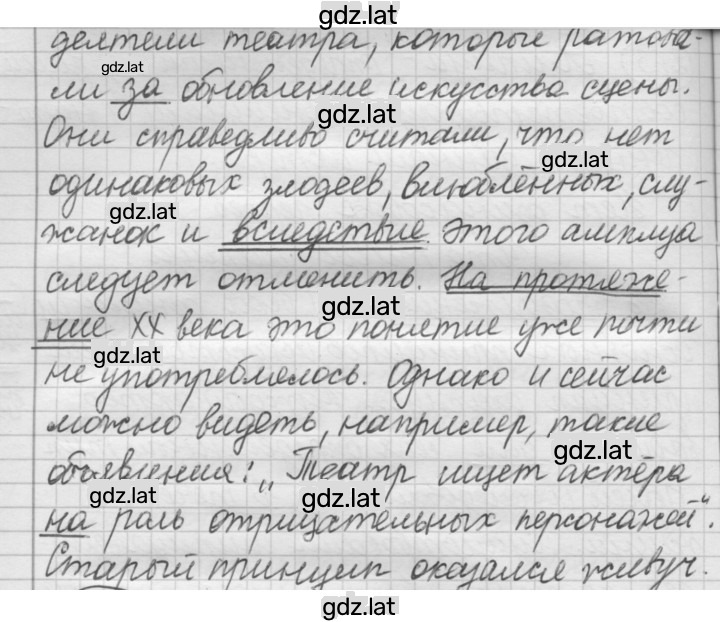 gdz.lat
деятели театра, которые ратова-
gdz.lat
ли за обновление искусства сцены.
gdz.lat
Они справедливо считали, что нет
gdz.lat
одинаковых злодеев, влюблённых, слу-
gdz.lat
жанок и вследствие этого амплуа
следует отменить. На протяже-
gdz.lat
ние XX века это понятие уже почти
gdz.lat
не употреблялось. Однако и сейчас
можно видеть, например, такие
gdz.lat
объявления: „Театр ищет актёра
gdz.lat gdz.lat
на роль отрицательных персонажей“.
Старый принцип оказался живуч.
gdz.lat